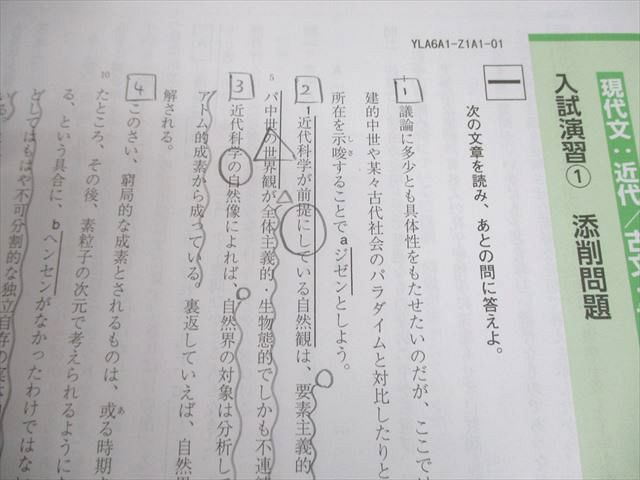 YLA6A1-Z1A1-01
現代文：近代／古文
入試演習① 添削問題
一
次の文章を読み、あとの問に答えよ。
1 議論に多少とも具体性をもたせたいのだが、ここでは
建的中世や某々古代社会のパラダイムと対比したりと
所在を示唆しさすることでaジゼンとしよう。
2 1近代科学が前提にしている自然観は、要素主義的
5 パ中世の世界観が全体主義的・生物態的でしかも不連続
3 近代科学の自然像によれば、自然界の対象は分析して
アトム的成素から成っている。裏返していえば、自然界
解される。
4 このさい、窮局的な成素とされるものは、或ある時期ま
10 たところ、その後、素粒子の次元で考えられるように
る、という具合に、bヘンセンがなかったわけではない
どしてはもはや不可分割的な独立自存の実